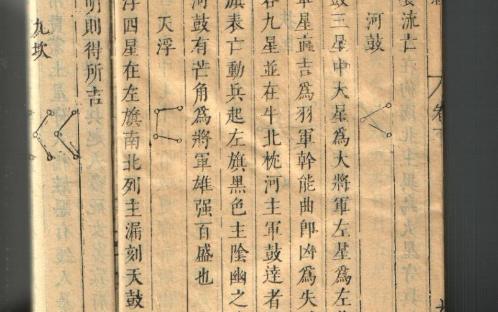 卷下
流亡
河鼓
鼓三星中大星爲大將軍左星爲左
軍星直吉爲羽軍幹能曲卽凶爲失
九星並在牛北枕河主軍鼓達者
旗表亡動兵起左旗黑色主陰幽之
河鼓有芒角爲將軍雄强百盛也
天浮
浮四星在左旗南北列主漏刻天鼓
明則得所吉
九坎